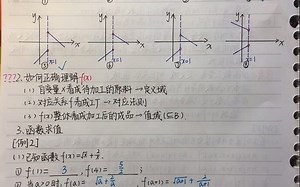 y y y y
x x x x
x=1 x=1 x=1
⑤ ⑥ ⑦ ⑧
???2.如何正确理解f(x)
(1)自变量x看成待加工的原料→定义域
(2)对应关系f看成工厂→对应法则
(3)f(x)整体看成加工后的成品→值域(⊆B)
3.函数求值
[例2]
(1)已知函数f(x)=√x+1/x.
①f(1)= 3 , f(4)= 5/2 ;
②当a>0时, f(a)= √a+2/a , f(a+1)= √a+1+2/a+1